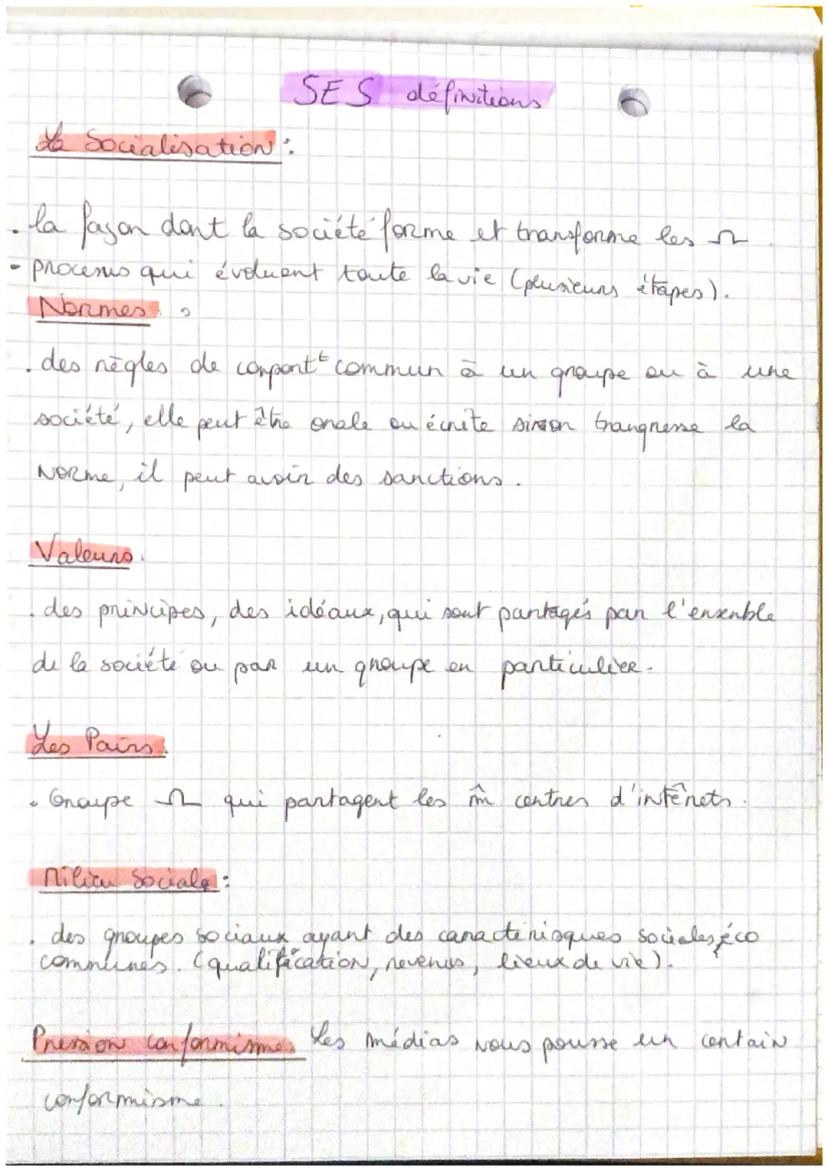 SES définitions
La Socialisation :
. la façon dont la société forme et transforme les Ω
- processus qui évoluent toute la vie (plusieurs étapes).
Normes :
. des règles de comportᵗ commun à un groupe ou à une
société, elle peut être orale ou écrite sinon trangresse la
Norme, il peut avoir des sanctions.
Valeurs.
. des principes, des idéaux, qui sont partagés par l'ensemble
de la société ou par un groupe en particulier.
Les Pairs.
. Groupe Ω qui partagent les m̂ centres d'intêrets.
Milieu Sociale :
. des groupes sociaux ayant des caractérisques sociales, éco
communes. (qualification, revenus, lieux de vie).
Pression conformisme. Les médias nous pousse un certain
conformisme.